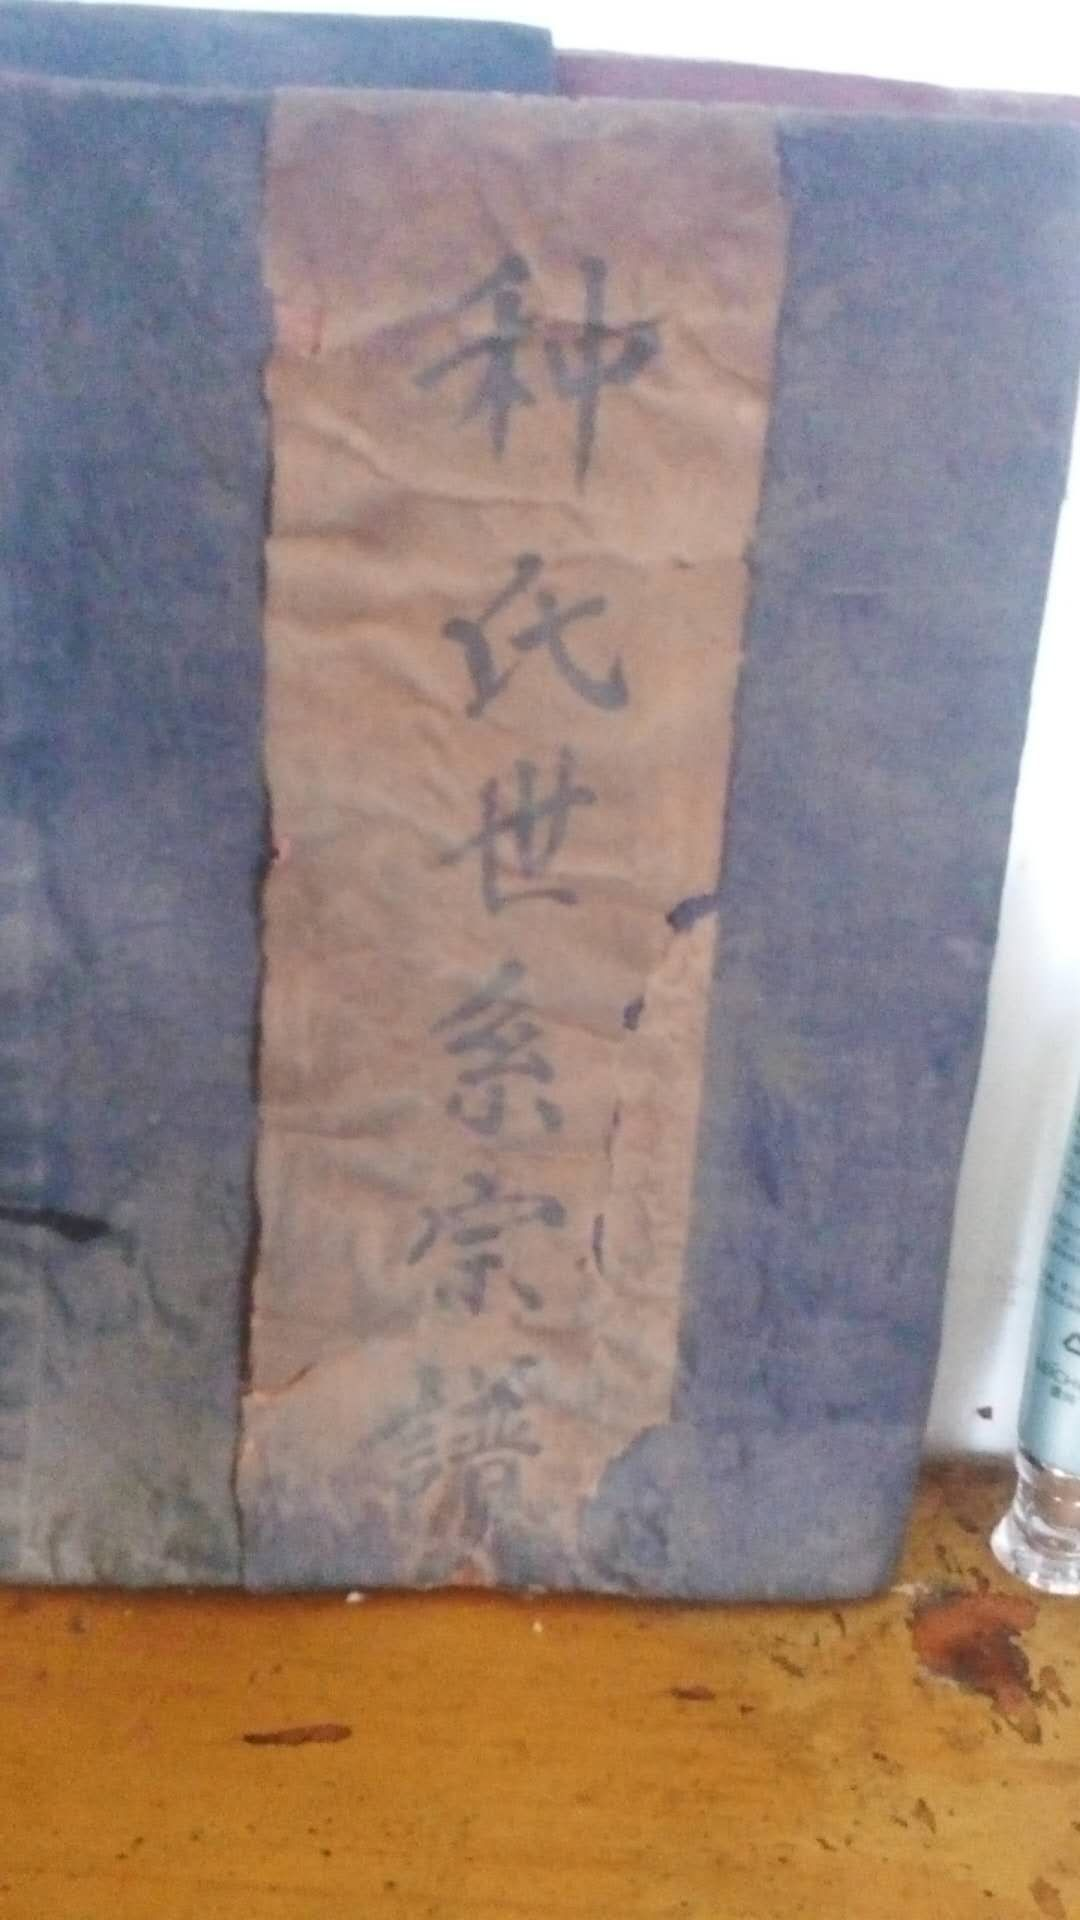 种氏世系宗譜